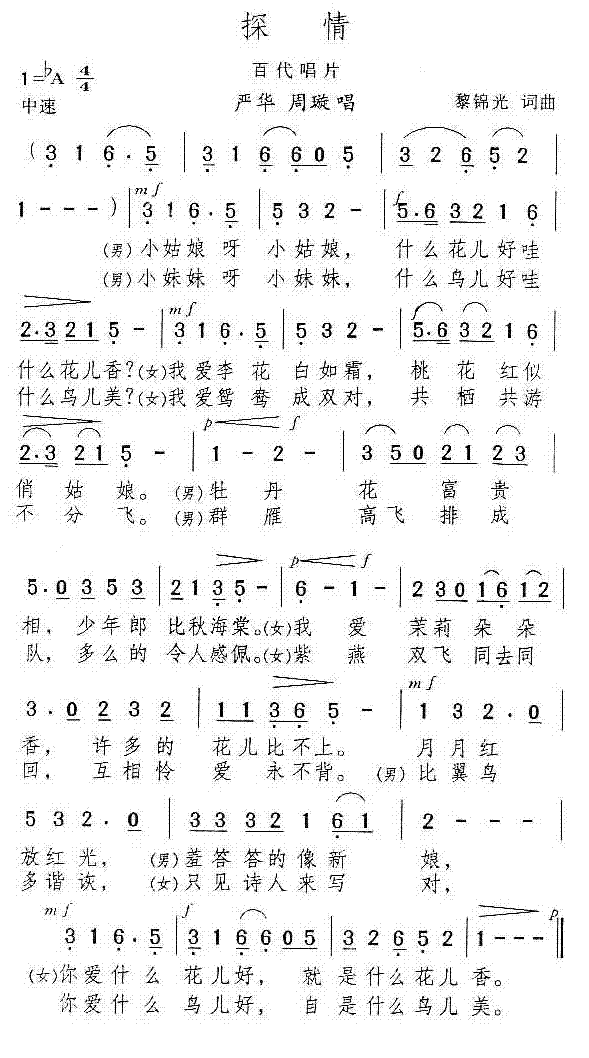 探 情
1=♭A 4/4
百代唱片
中速
严华 周璇唱
黎锦光 词曲
( 3 1 6 . 5 | 3 1 6 6 0 5 | 3 2 6 5 2 |
1 - - - ) | mf 3 1 6 . 5 | 5 3 2 - | f 5 . 6 3 2 1 6 |
(男) 小姑娘 呀 小姑娘, 什么花儿好哇
(男) 小妹妹 呀 小妹妹, 什么鸟儿好哇
2 . 3 2 1 5 - | mf 3 1 6 . 5 | 5 3 2 - | f 5 . 6 3 2 1 6 |
什么花儿香? (女) 我爱李花 白如霜, 桃花红似
什么鸟儿美? (女) 我爱鸳鸯 成双对, 共栖共游
2 . 3 2 1 5 - | p 1 - 2 - f | 3 5 0 2 1 2 3 |
俏姑娘。 (男) 牡丹 花富贵
不分飞。 (男) 群雁 高飞排成
5 . 0 3 5 3 | 2 1 3 5 - | p 6 - 1 - f | 2 3 0 1 6 1 2 |
相, 少年郎 比秋海棠。 (女) 我爱 茉莉朵朵
队, 多么的 令人感佩。 (女) 紫燕 双飞同去同
3 . 0 2 3 2 | 1 1 3 6 5 - | mf 1 3 2 . 0 |
香, 许多的 花儿比不上。 月月红
回, 互相怜 爱永不背。 (男) 比翼鸟
5 3 2 . 0 | 3 3 3 2 1 6 1 | 2 - - - |
放红光, (男) 羞答答的像新 娘,
多谐诙, (女) 只见诗人来写 对,
mf 3 1 6 . 5 | f 3 1 6 6 0 5 | 3 2 6 5 2 | 1 - - - p ||
(女) 你爱什么 花儿好, 就是什么花儿香。
你爱什么 鸟儿好, 自是什么鸟儿美。